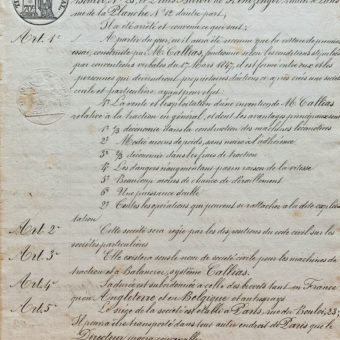 rue de la Planche N° 12 d'autre part,
Il a été dit et convenu ce qui suit :
Art. 1er
A partir du jour, où il aura été reconnu que la voiture de première
essai, construite par M. Tallias, fonctionne selon les conditions stipulées
par conventions verbales du 17 Mars 1847, il est formé entre eux et les
personnes qui deviendront propriétaires d'actions ci après créés une société
civile et particulière ayant pour objet
1° La vente et l'exploitation d'une invention de M. Tallias
relative à la traction en général, et dont les avantages principaux sont
1° 1/3 d'économie dans la construction des machines locomotives
2° Moitié moins de poids, sans nuire à l'adhérence
3° 1/3 d'économie dans les frais de traction
4° Les dangers n'augmentant pas en raison de la vitesse
5° Beaucoup moins de chance de déraillement
6° Une puissance double
2° Toutes les opérations qui peuvent se rattacher à la dite exploi-
tation
Art. 2e
Cette société sera régie par les dispositions du code civil sur les
sociétés particulières
Art. 3e
Elle existera sous le nom de société civile pour les machines de
traction et à Balancier, système Tallias.
Art. 4e
Sa durée est subordonnée à celle des brevets tant en France
qu'en Angleterre et en Belgique et autres pays
Art. 5e
Le siège de la société est établi à Paris, rue du Bouloi, 23;
Il pourra être transporté dans tout autre endroit de Paris que le
Directeur jugera convenable